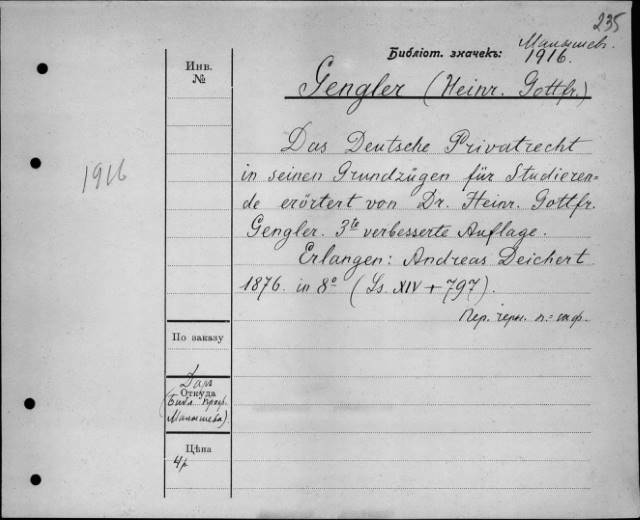 235
Библіот. значекъ: Малышев.
1916.
Инв.
№
Gengler (Heinr. Gottfr.)
1916
Das Deutsche Privatrecht
in seinen Grundzügen für Studieren=
de erörtert von Dr. Heinr. Gottfr.
Gengler. 3te verbesserte Auflage.
Erlangen: Andreas Deichert
1876. in 8° (Ss. XIV + 797).
Пер. черн. п.=
По заказу
Даръ
Откуда
(Библ. проф.
Малышева).
Цѣна
4р